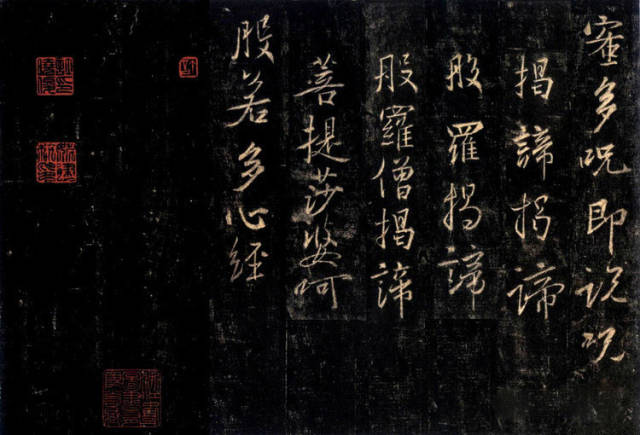 蜜多呪即説呪
揭諦揭諦
般羅揭諦
般羅僧揭諦
菩提莎婆呵
般若多心經